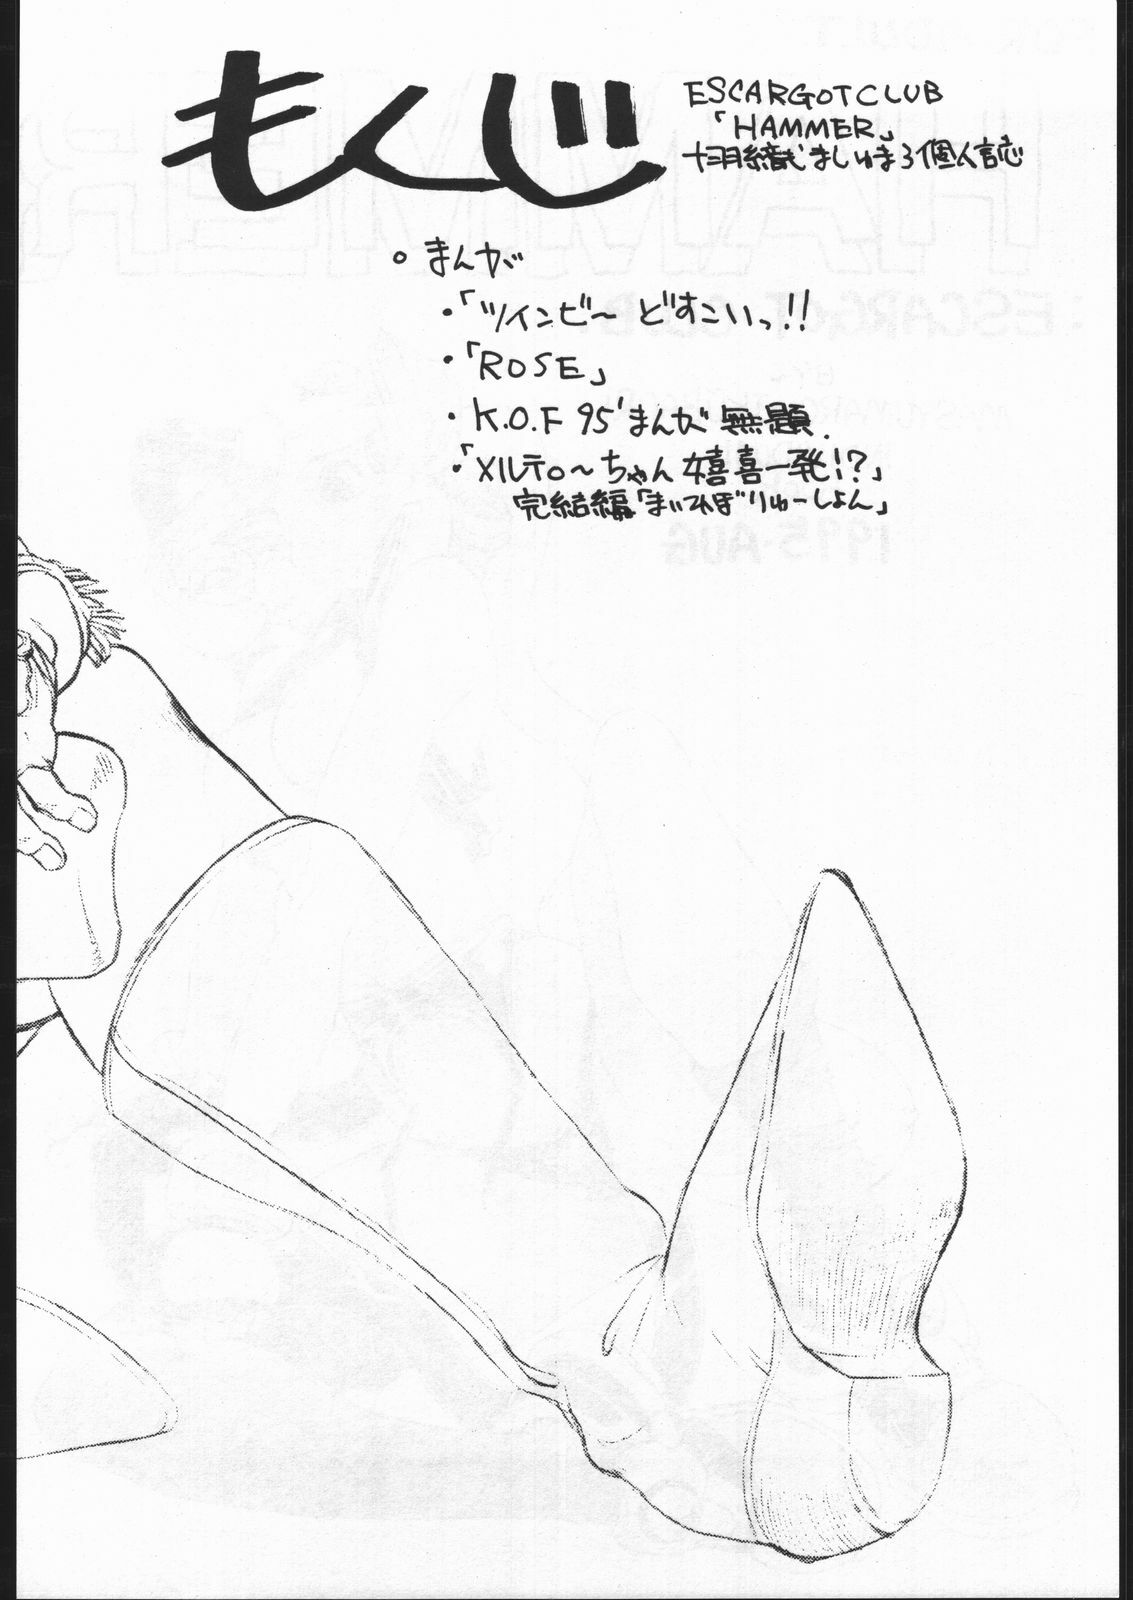 もくじ
ESCARGOTCLUB
「HAMMER」
ましゅまろ個人誌
・まんが
・「ツインビ〜 どすこいっ!!
・「ROSE」
・K.O.F 95'まんが 無題.
・「メルティ〜ちゃん 嬉喜一発!?」
完結編「まいてれぽりゅーしょん」